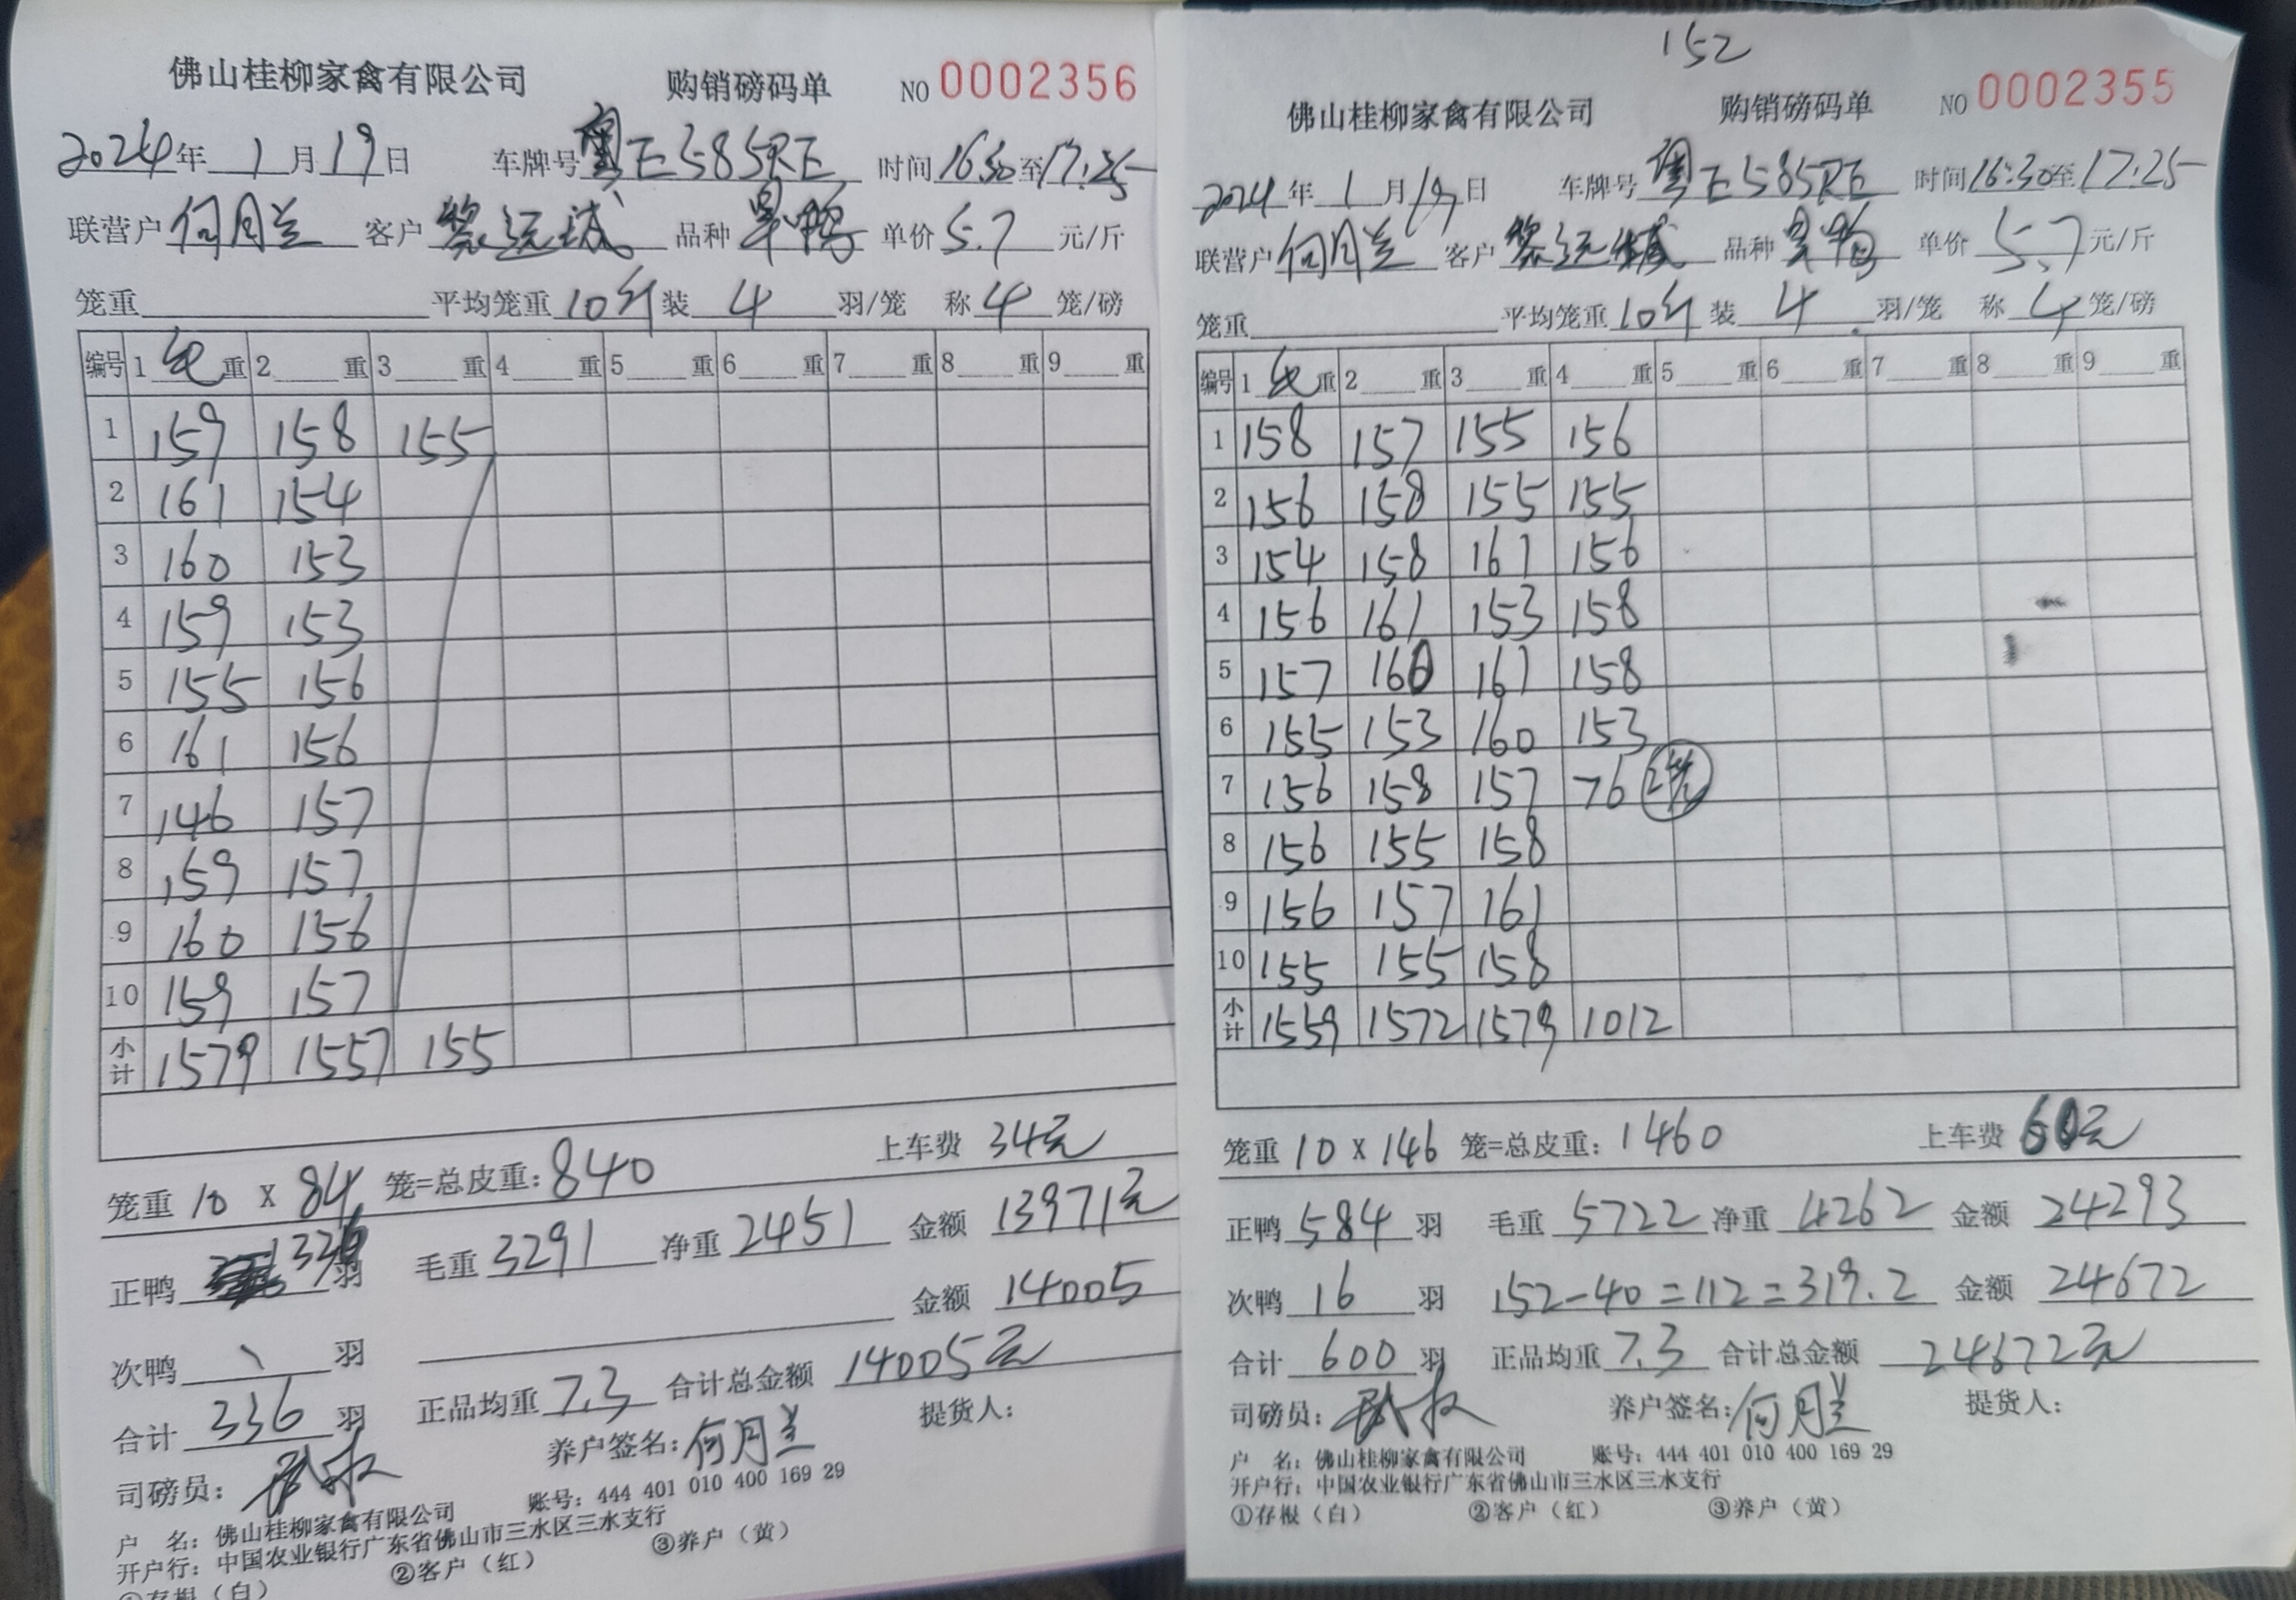 佛山桂柳家禽有限公司 购销磅码单 NO 0002356
2024年 1 月 19 日 车牌号 粤E585RE 时间 16:30 至 17:25
联营户 何月兰 客户 黎运城 品种 旱鸭 单价 5.7 元/斤
笼重 平均笼重 10斤 装 4 羽/笼 称 4 笼/磅
编号 1 毛 重 2 重 3 重 4 重 5 重 6 重 7 重 8 重 9 重
1 159 158 155
2 161 154
3 160 153
4 159 153
5 155 156
6 161 156
7 146 157
8 159 157
9 160 156
10 159 157
小计 1579 1557 155
笼重 10 X 84 笼=总皮重: 840 上车费 34元
正鸭 336 羽 毛重 3291 净重 2451 金额 13971元
金额 14005
次鸭 羽
合计 336 羽 正品均重 7.3 合计总金额 14005元
司磅员: 养户签名: 何月兰 提货人:
户 名: 佛山桂柳家禽有限公司 账号: 444 401 010 400 169 29
开户行: 中国农业银行广东省佛山市三水区三水支行
①存根(白) ②客户(红) ③养户(黄)
152
佛山桂柳家禽有限公司 购销磅码单 NO 0002355
2024 年 1 月 19 日 车牌号 粤E585RE 时间 16:30 至 17:25
联营户 何月兰 客户 黎运城 品种 旱鸭 单价 5.7 元/斤
笼重 平均笼重 10斤 装 4 羽/笼 称 4 笼/磅
编号 1 毛 重 2 重 3 重 4 重 5 重 6 重 7 重 8 重 9 重
1 158 157 155 156
2 156 158 155 155
3 154 158 161 156
4 156 161 153 158
5 157 160 161 158
6 155 153 160 153
7 156 158 157 76 2笼
8 156 155 158
9 156 157 161
10 155 155 158
小计 1559 1572 1579 1012
笼重 10 X 146 笼=总皮重: 1460 上车费 60元
正鸭 584 羽 毛重 5722 净重 4262 金额 24293
次鸭 16 羽 152-40=112=319.2 金额 24672
合计 600 羽 正品均重 7.3 合计总金额 24672元
司磅员: 养户签名: 何月兰 提货人:
户 名: 佛山桂柳家禽有限公司 账号: 444 401 010 400 169 29
开户行: 中国农业银行广东省佛山市三水区三水支行
①存根(白) ②客户(红) ③养户(黄)